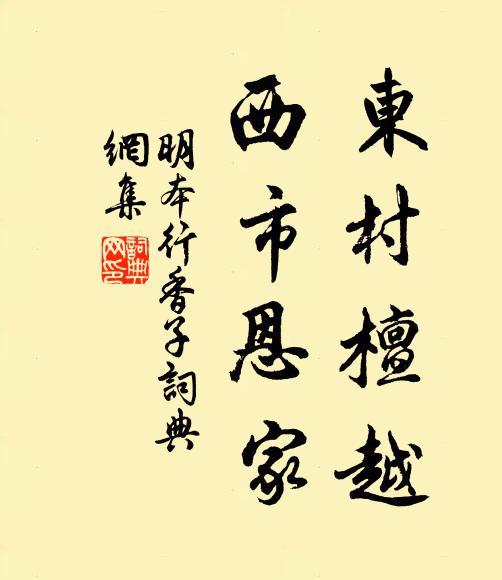 東村檀越
西市恩家
明本行香子詞典
網集
詞典
网印